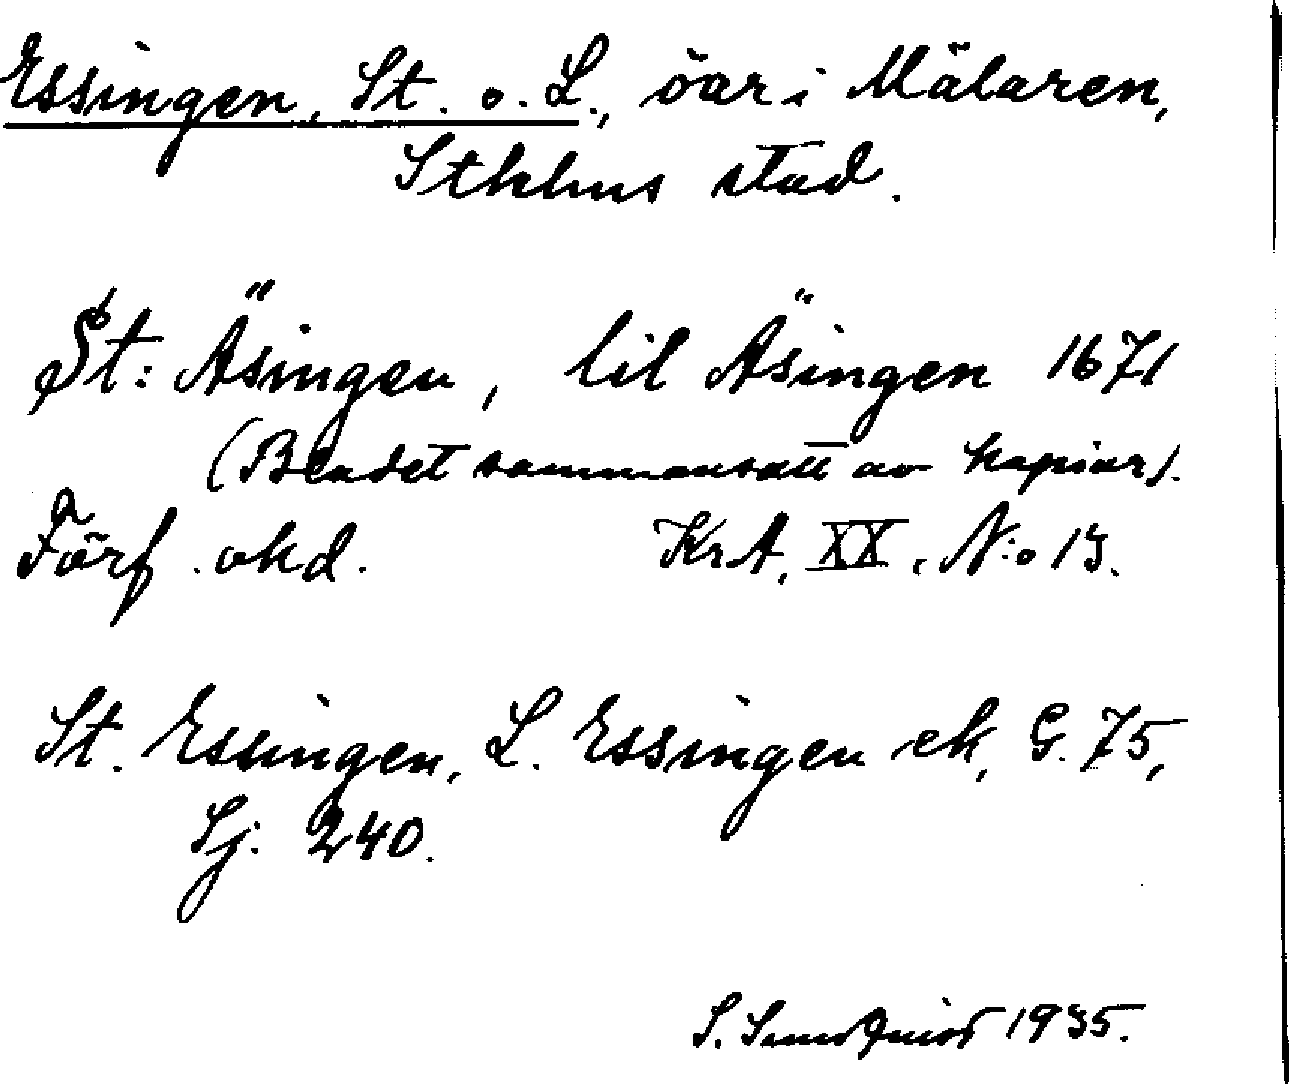 Essingen, St. o. L., öar i Mälaren,
Sthlms stad.
St: Äsingen, lil Äsingen 1671
(Bladet sammansatt av kopior).
Förf. okd. KrA, XX, N:o 13.
St. Essingen, L. Essingen ek, G. 75,
Sj. 240.
S. Sundquist 1935.